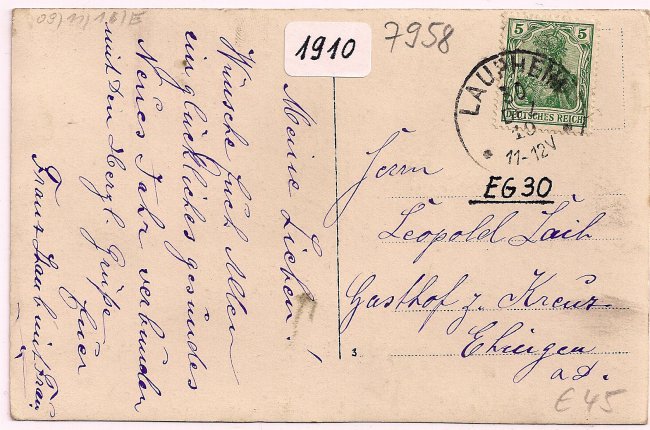 09/11/10/E
1910
7958
5
5
DEUTSCHES REICH
LAUPHEIM
10
11-12V
EG30
Meine Lieben!
Wünsche Euch Allen
ein glückliches gesundes
Neues Jahr verbunden
mit den Herzl. Grüße
Euer
Franz und Frau
Herrn
Leopold Laib
Gasthof z. Kreuz
Ehingen
a D.
3.
€45